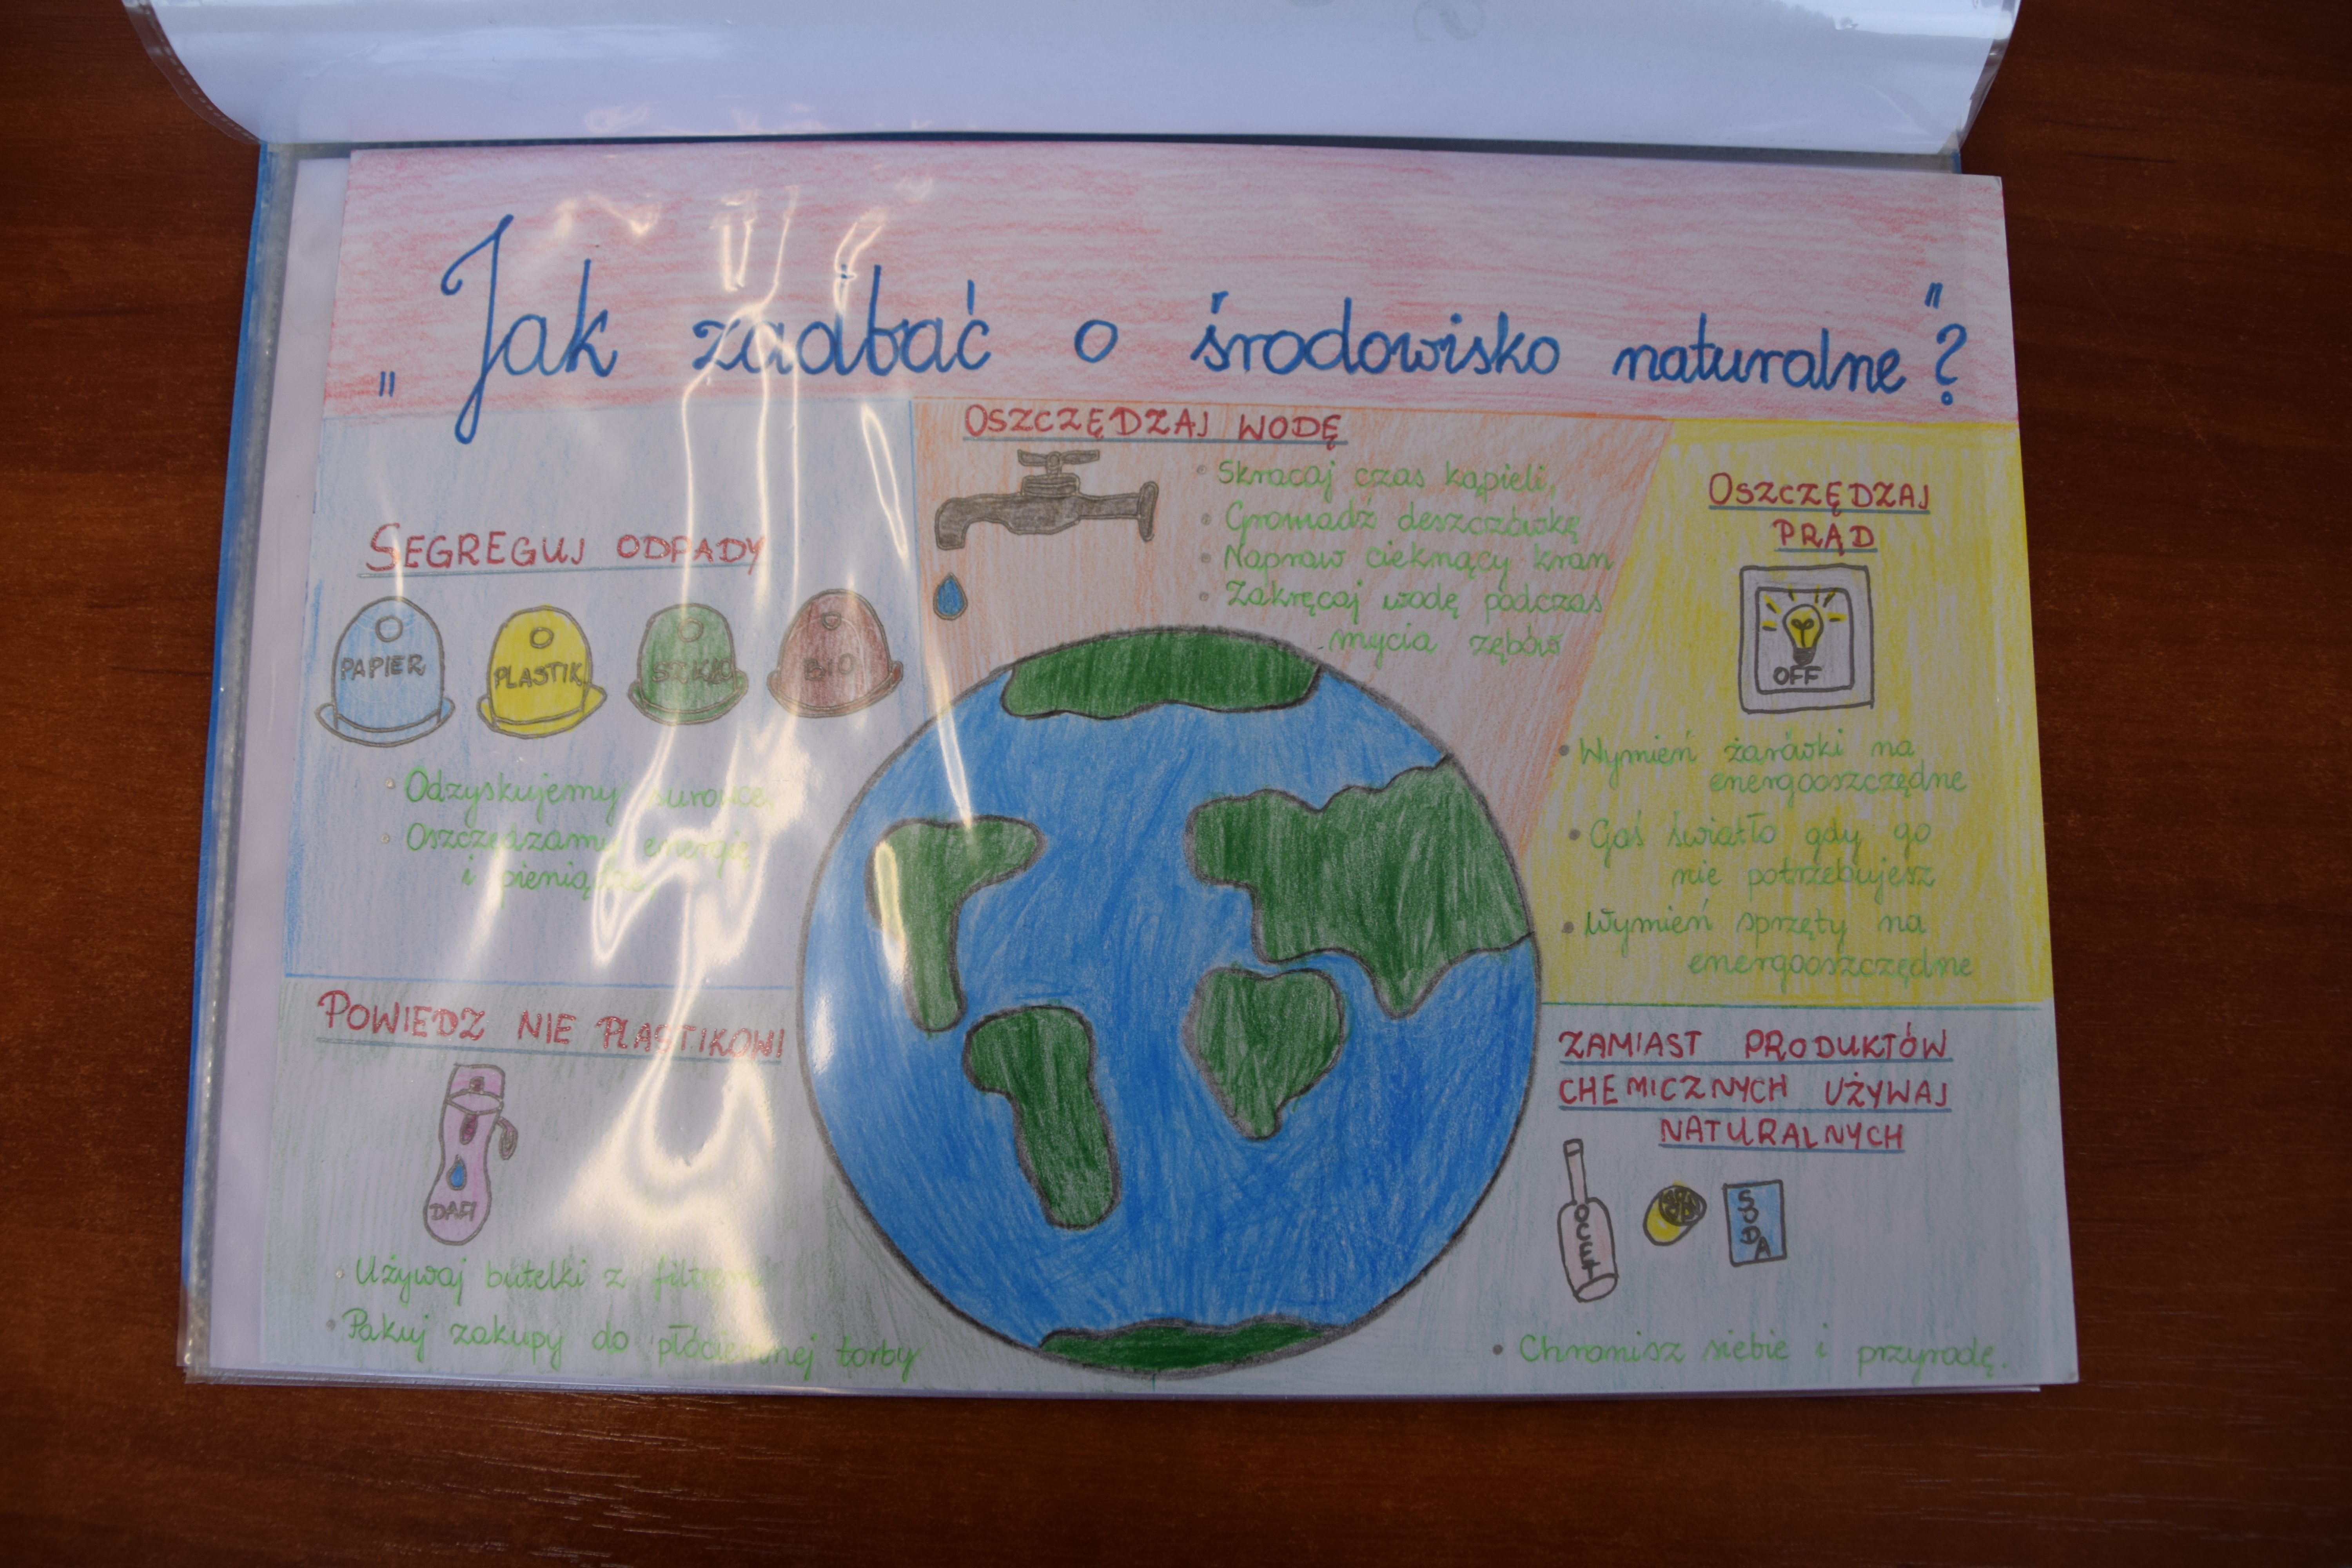 „Jak zadbać o środowisko naturalne"?
SEGREGUJ ODPADY
PAPIER
PLASTIK
SZKŁO
BIO
• Odzyskujemy surowce,
• Oszczędzamy energię
i pieniądze,
OSZCZĘDZAJ WODĘ
• Skracaj czas kąpieli,
• Gromadź deszczówkę
• Napraw cieknący kran
• Zakręcaj wodę podczas
mycia zębów
OSZCZĘDZAJ
PRĄD
OFF
• Wymień żarówki na
energooszczędne
• Gaś światło gdy go
nie potrzebujesz
• Wymień sprzęty na
energooszczędne
POWIEDZ NIE PLASTIKOWI
DAFI
• Używaj butelki z filtrem
• Pakuj zakupy do płóciennej torby
ZAMIAST PRODUKTÓW
CHEMICZNYCH UŻYWAJ
NATURALNYCH
OCET
SODA
• Chronisz siebie i przyrodę.